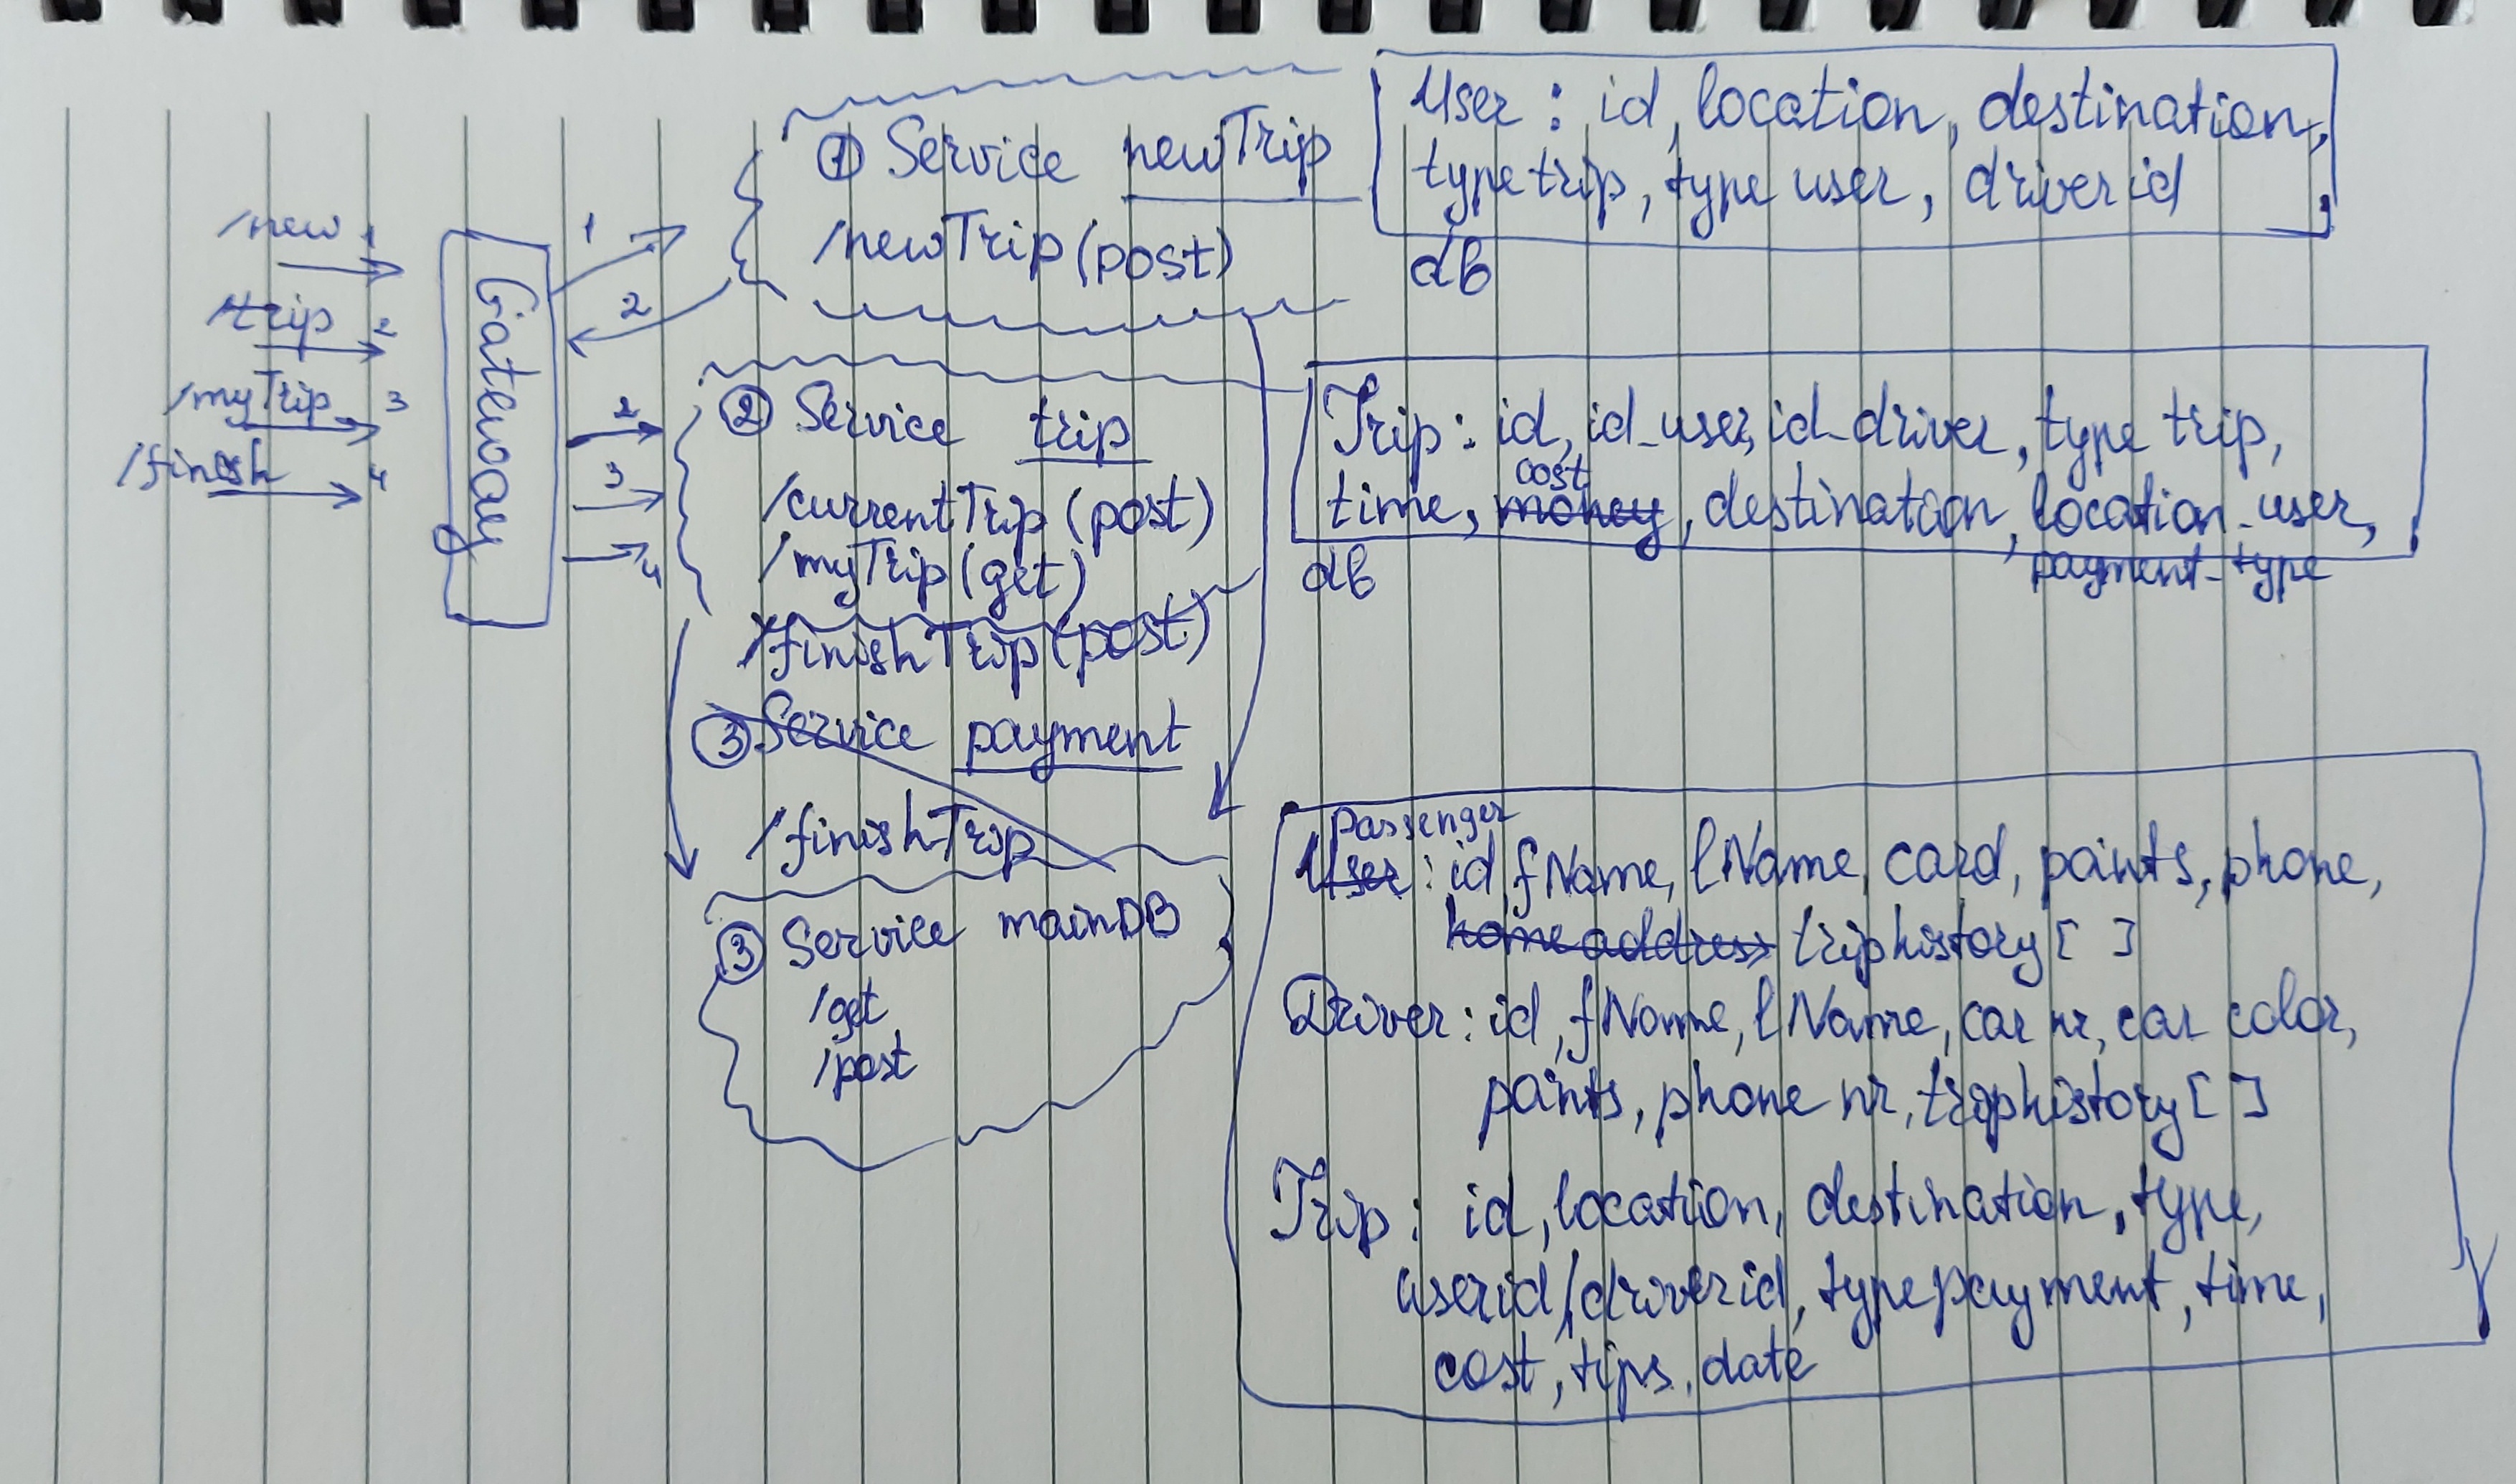 /new 1
/trip 2
/myTrip 3
/finish 4
Gateway
1
2
2
3
4
① Service newTrip
/newTrip (post)
User : id, location, destination,
type trip, type user, driver id
db
② Service trip
/currentTrip (post)
/myTrip (get)
/finishTrip (post)
Trip : id, id_user, id_driver, type trip,
cost
time, money, destination, location_user,
payment_type
db
③ Service payment
/finishTrip
③ Service mainDB
/get
/post
Passenger
User : id, fName, lName, card, points, phone,
home address triphistory [ ]
Driver : id, fName, lName, car nr, car color,
points, phone nr, triphistory [ ]
Trip : id, location, destination, type,
userid/driverid, typepayment, time,
cost, tips, date